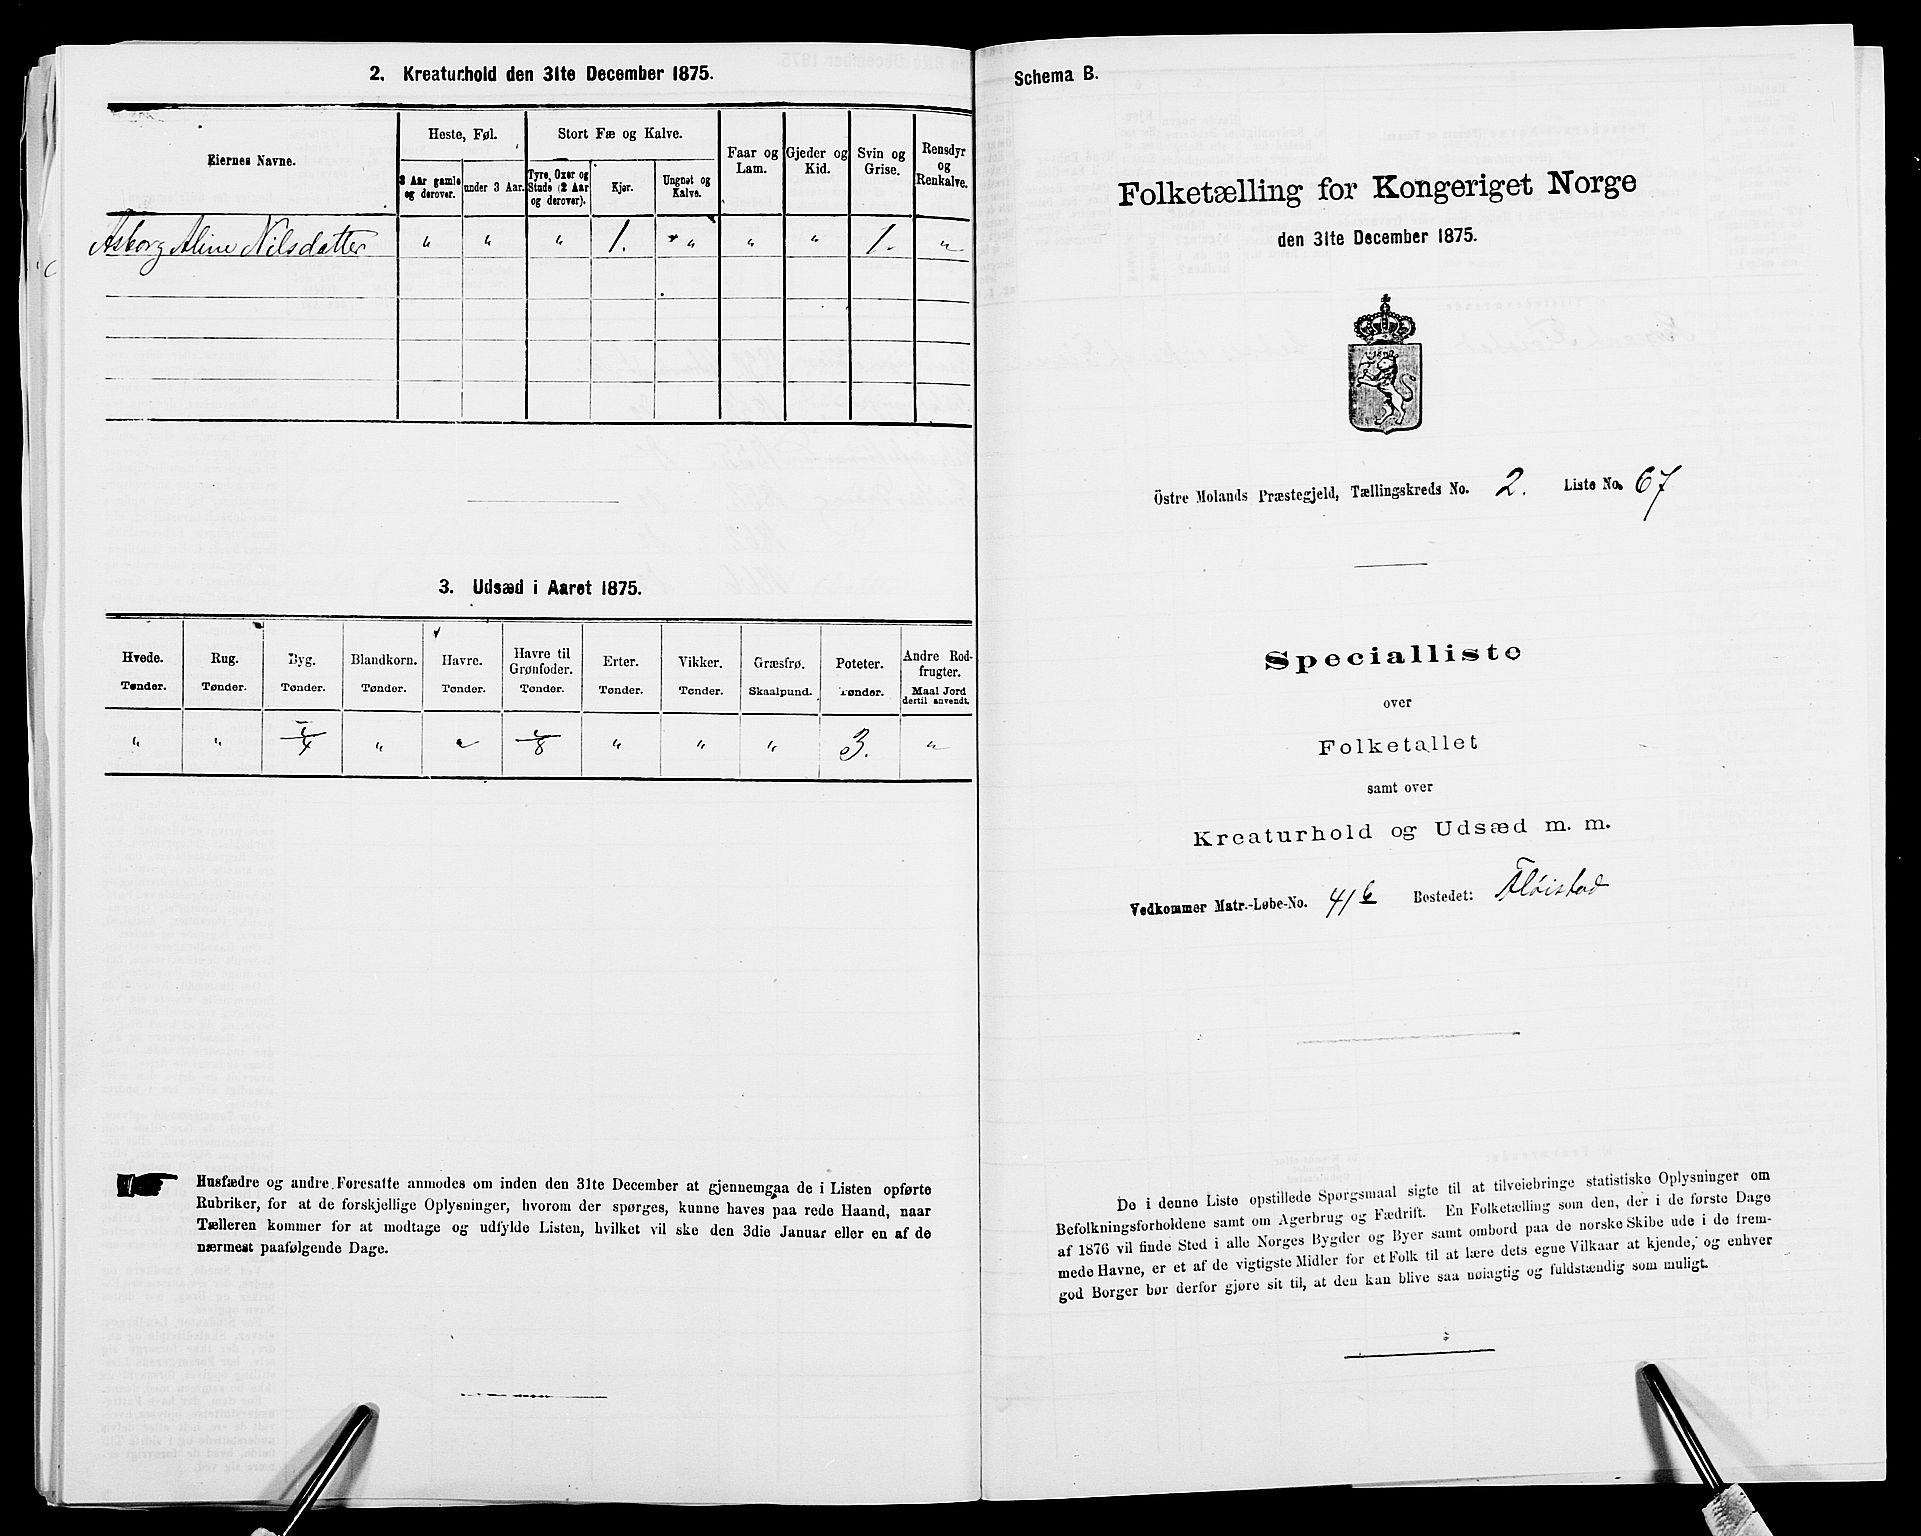 2. Kreaturhold den 31te December 1875.
Eiernes Navne.
Heste, Føl.
Stort Fæ og Kalve.
Faar og Lam.
Gjeder og Kid.
Svin og Grise.
Rensdyr og Renkalve.
3 Aar gamle og derover.
under 3 Aar.
Tyre, Oxer og Stude (2 Aar og derover).
Kjør.
Ungnøt og Kalve.
Asborg Aline Nilsdatter " " " 1. " " " 1. "
3. Udsæd i Aaret 1875.
Hvede. Rug. Byg. Blandkorn. Havre. Havre til Grønfoder. Erter. Vikker. Græsfrø. Poteter. Andre Rodfrugter.
Tønder. Tønder. Tønder. Tønder. Tønder. Tønder. Tønder. Tønder. Skaalpund. Tønder. Maal Jord dertil anvendt.
" " 1/4 " " 1/8 " " " 3. "
Husfædre og andre Foresatte anmodes om inden den 31te December at gjennemgaa de i Listen opførte
Rubriker, for at de forskjellige Oplysninger, hvorom der spørges, kunne haves paa rede Haand, naar
Tælleren kommer for at modtage og udfylde Listen, hvilket vil ske den 3die Januar eller en af de
nærmest paafølgende Dage.
Schema B.
Folketælling for Kongeriget Norge
den 31te December 1875.
Östre Molands Præstegjeld, Tællingskreds No. 2. Liste No. 67
Specialliste
over
Folketallet
samt over
Kreaturhold og Udsæd m. m.
Vedkommer Matr.-Løbe-No. 41 b Bostedet: Fløistad
De i denne Liste opstillede Spørgsmaal sigte til at tilveiebringe statistiske Oplysninger om
Befolkningsforholdene samt om Agerbrug og Fædrift. En Folketælling som den, der i de første Dage
af 1876 vil finde Sted i alle Norges Bygder og Byer samt ombord paa de norske Skibe ude i de frem-
mede Havne, er et af de vigtigste Midler for et Folk til at lære dets egne Vilkaar at kjende, og enhver
god Borger bør derfor gjøre sit til, at den kan blive saa nøiagtig og fuldstændig som muligt.